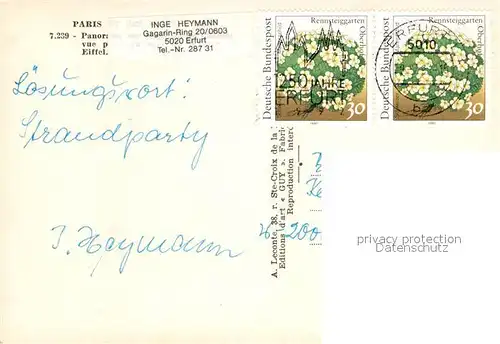 PARIS
7.239 - Panor
vue p
Eiffel.
INGE HEYMANN
Gagarin-Ring 20/0603
5020 Erfurt
Tel.-Nr. 287 31
Deutsche Bundespost
Rennsteiggarten
Oberhof
30
1250 JAHRE
ERFURT
Deutsche Bundespost
Rennsteiggarten
30
ERFURT
5010
Lösungswort:
Strandparty
I. Heymann
A. Leconte, 38, r. Ste-Croix de la
Editions d'art « GUY ». Fabri
Reproduction interd
200
privacy protection
watermark/Datenschutz